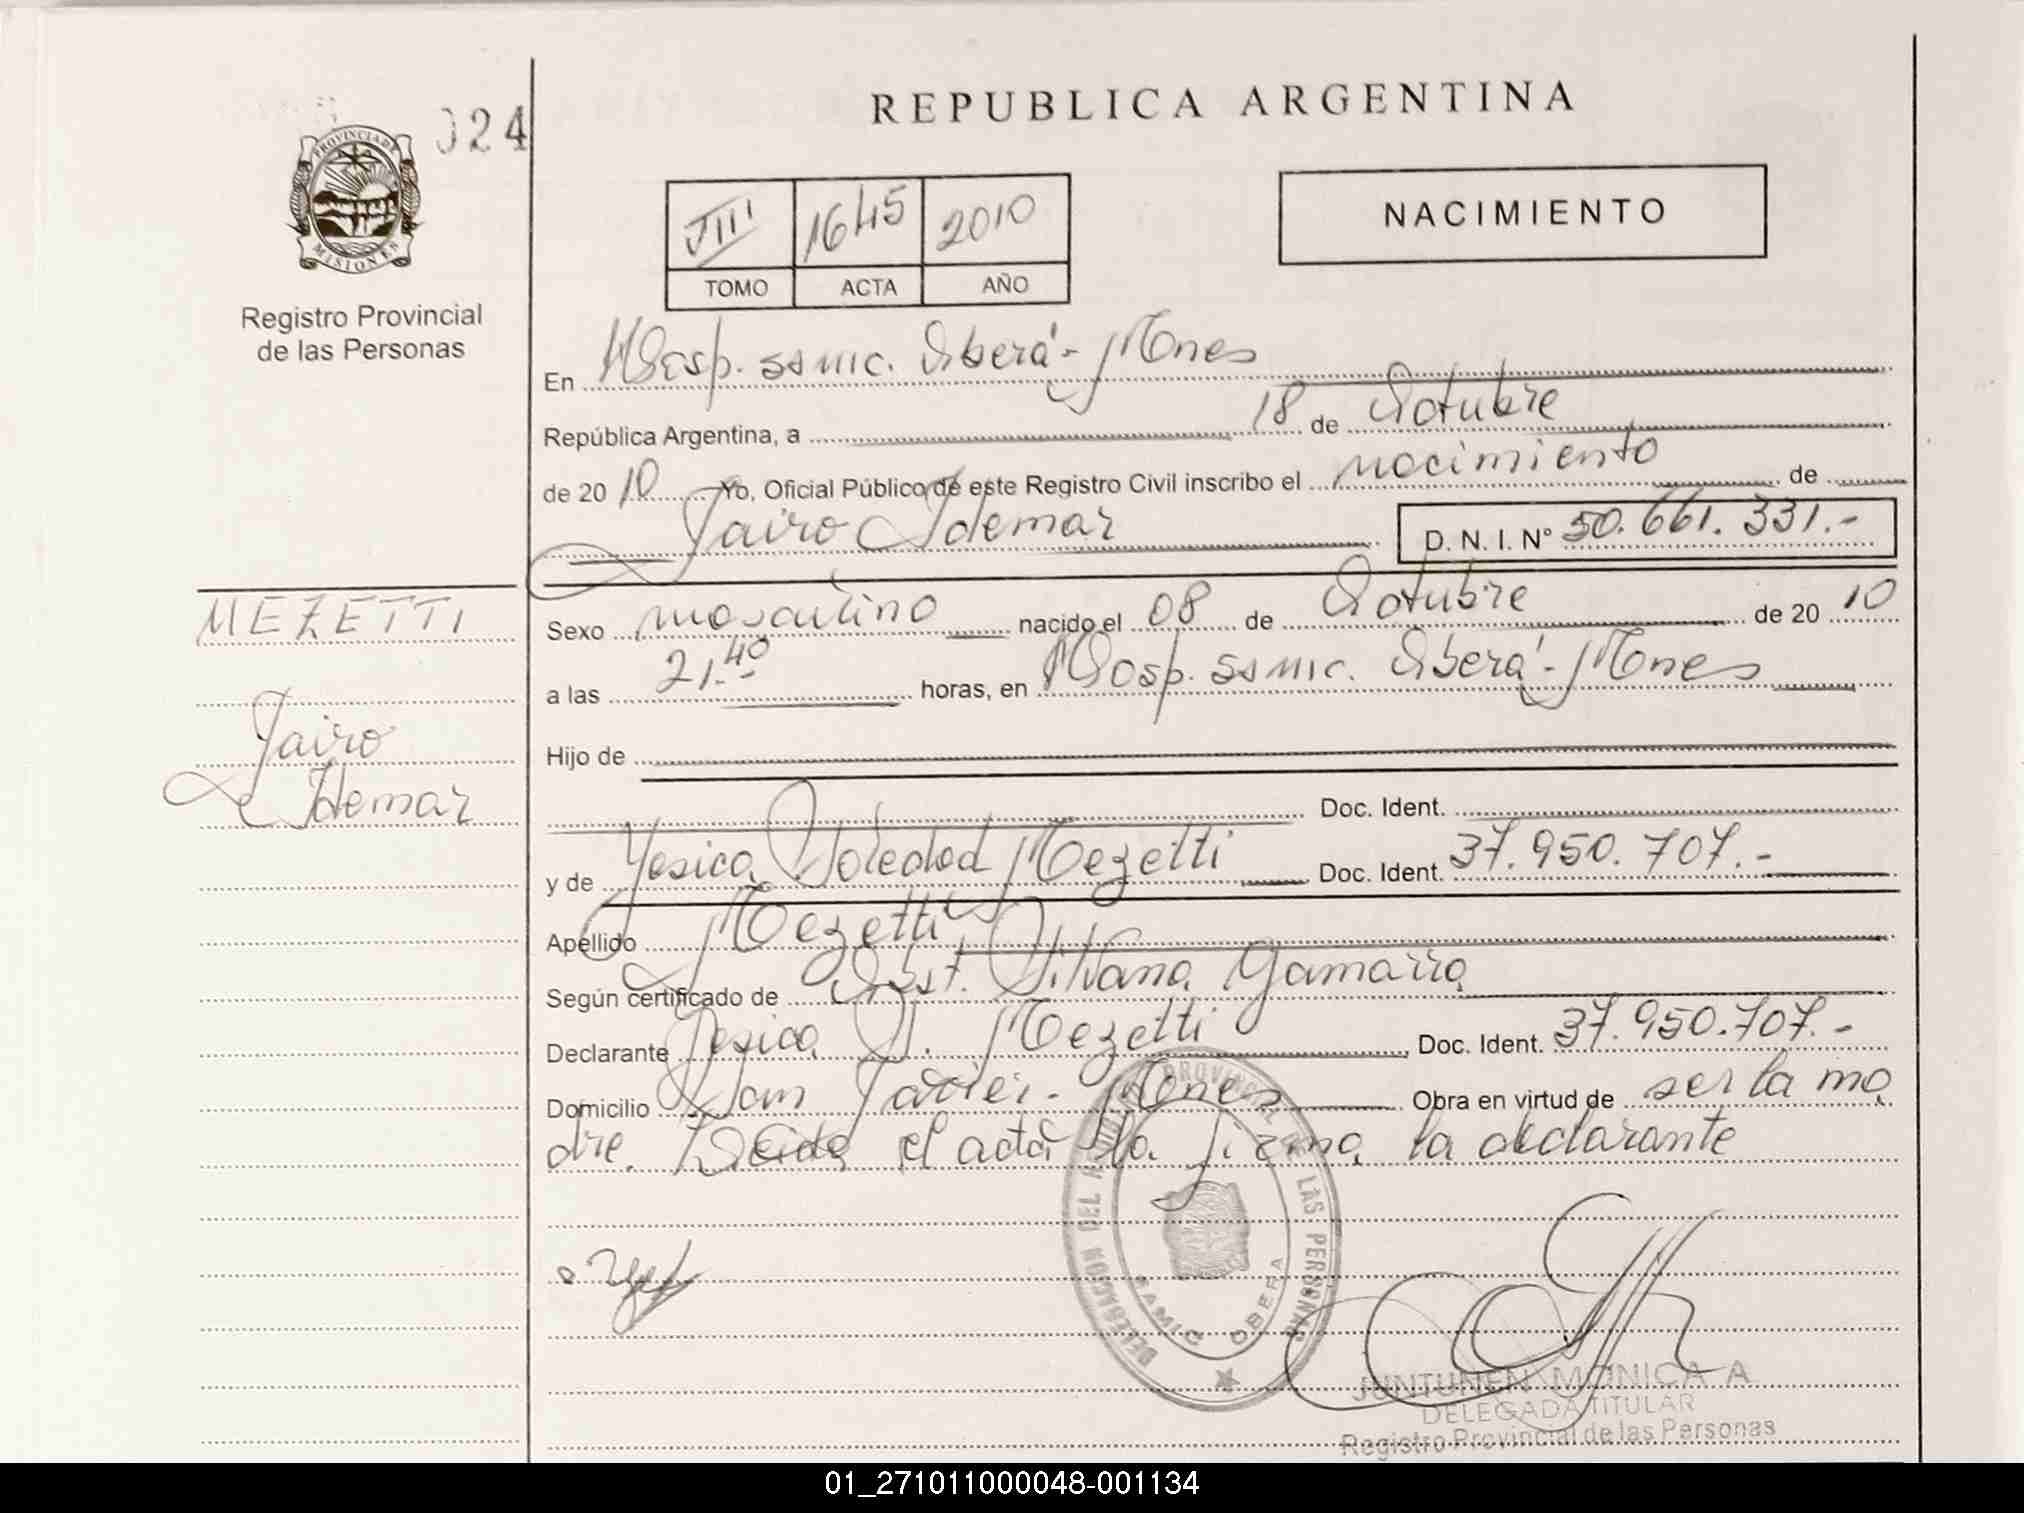 024
REPUBLICA ARGENTINA
PROVINCIA DE
MISIONES
Registro Provincial
de las Personas
1645 2010
TOMO ACTA AÑO
NACIMIENTO
En Hosp. samic. Oberá - Mnes
República Argentina, a 18 de Octubre
de 2010 Yo, Oficial Público de este Registro Civil inscribo el nacimiento de
Jairo Idemar D. N. I. Nº 50.661.331.-
MEZETTI
Jairo
Idemar
Sexo masculino nacido el 08 de Octubre de 2010
a las 21.40 horas, en Hosp. samic. Oberá - Mnes
Hijo de
Doc. Ident.
y de Yesica Soledad Mezetti Doc. Ident. 37.950.707.-
Apellido Mezetti
Según certificado de Obst. Silvana Gamarra
Declarante Yesica S. Mezetti Doc. Ident. 37.950.707.-
Domicilio San Javier - Mnes Obra en virtud de ser la ma
dre. Leida el acta la firma la declarante
DELEGACION DEL REGISTRO PROVINCIAL DE LAS PERSONAS
SAMIC OBERA
JUNTUNEN MONICA A
DELEGADA TITULAR
Registro Provincial de las Personas
01_271011000048-001134